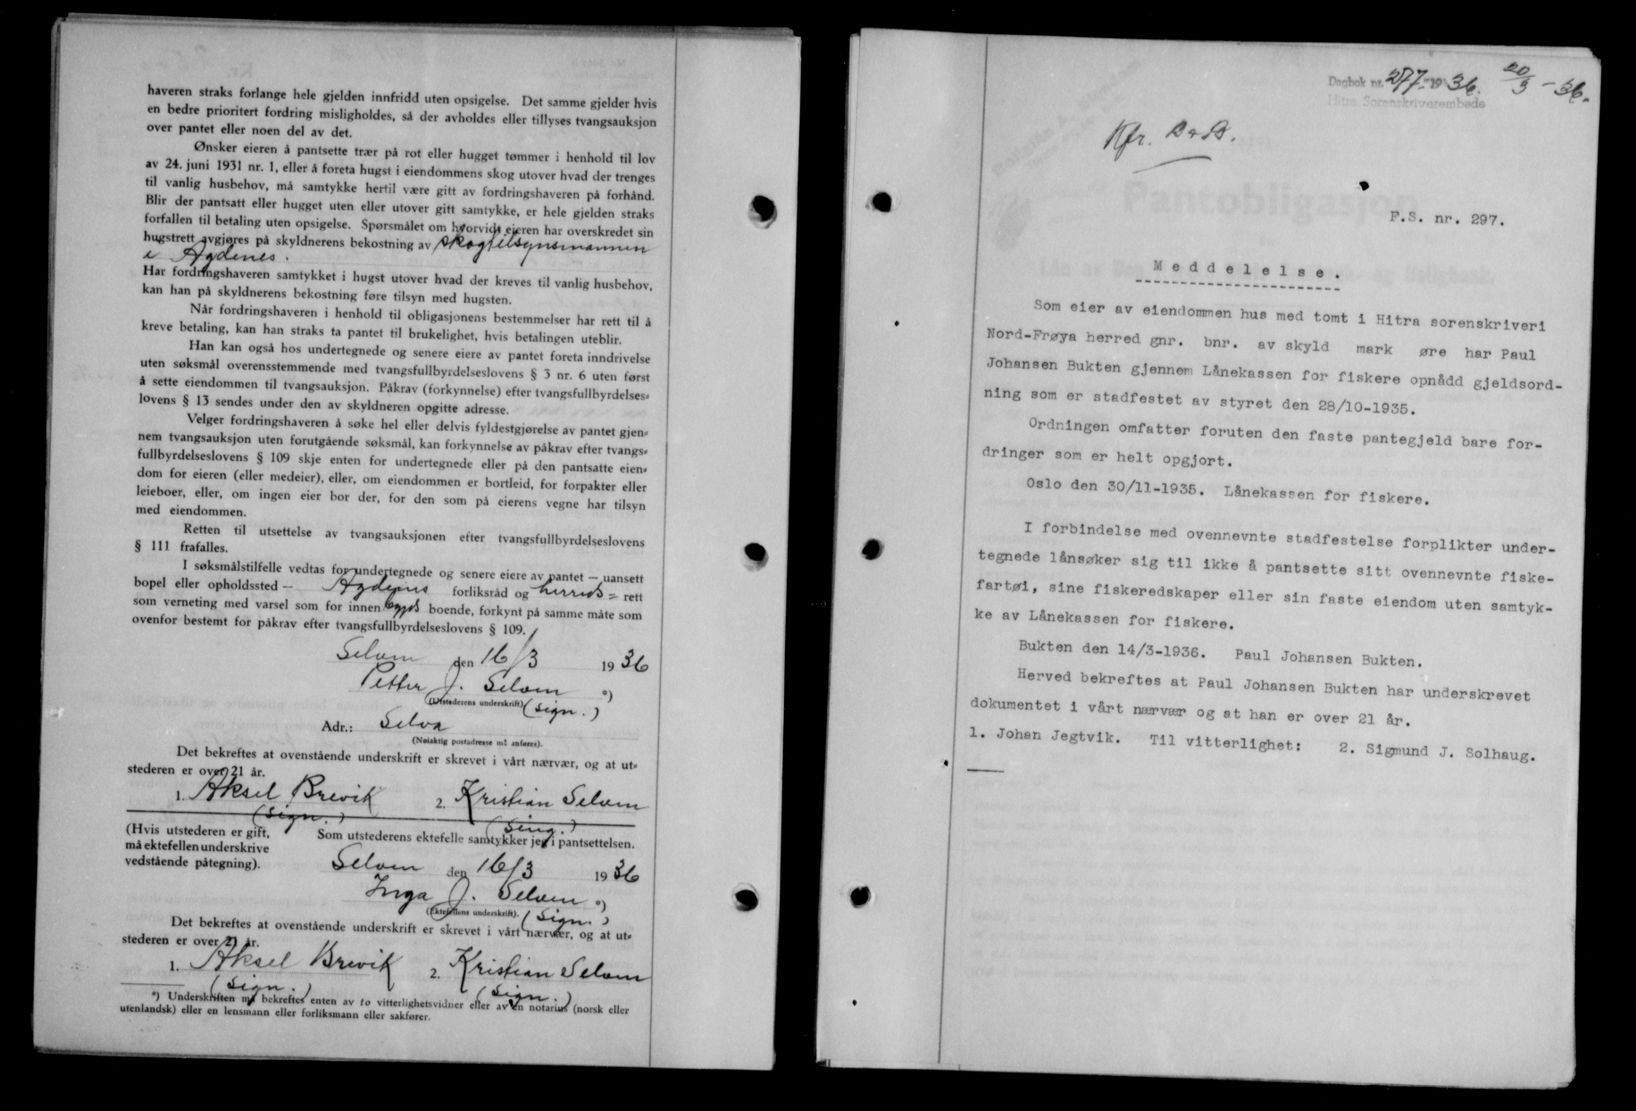 haveren straks forlange hele gjelden innfridd uten opsigelse. Det samme gjelder hvis
en bedre prioritert fordring misligholdes, så der avholdes eller tillyses tvangsauksjon
over pantet eller noen del av det.
Ønsker eieren å pantsette trær på rot eller hugget tømmer i henhold til lov
av 24. juni 1931 nr. 1, eller å foreta hugst i eiendommens skog utover hvad der trenges
til vanlig husbehov, må samtykke hertil være gitt av fordringshaveren på forhånd.
Blir der pantsatt eller hugget uten eller utover gitt samtykke, er hele gjelden straks
forfallen til betaling uten opsigelse. Spørsmålet om hvorvidt eieren har overskredet sin
hugstrett avgjøres på skyldnerens bekostning av skogtilsynsmannen
i Agdenes.
Har fordringshaveren samtykket i hugst utover hvad der kreves til vanlig husbehov,
kan han på skyldnerens bekostning føre tilsyn med hugsten.
Når fordringshaveren i henhold til obligasjonens bestemmelser har rett til å
kreve betaling, kan han straks ta pantet til brukelighet, hvis betalingen uteblir.
Han kan også hos undertegnede og senere eiere av pantet foreta inndrivelse
uten søksmål overensstemmende med tvangsfullbyrdelseslovens § 3 nr. 6 uten først
å sette eiendommen til tvangsauksjon. Påkrav (forkynnelse) efter tvangsfullbyrdelses-
lovens § 13 sendes under den av skyldneren opgitte adresse.
Velger fordringshaveren å søke hel eller delvis fyldestgjørelse av pantet gjen-
nem tvangsauksjon uten forutgående søksmål, kan forkynnelse av påkrav efter tvangs-
fullbyrdelseslovens § 109 skje enten for undertegnede eller på den pantsatte eien-
dom for eieren (eller medeier), eller, om eiendommen er bortleid, for forpakter eller
leieboer, eller, om ingen eier bor der, for den som på eierens vegne har tilsyn
med eiendommen.
Retten til utsettelse av tvangsauksjonen efter tvangsfullbyrdelseslovens
§ 111 frafalles.
I søksmålstilfelle vedtas for undertegnede og senere eiere av pantet — uansett
bopel eller opholdssted — Agdenes forliksråd og herreds- rett
som verneting med varsel som for innen bygds boende, forkynt på samme måte som
ovenfor bestemt for påkrav efter tvangsfullbyrdelseslovens § 109.
Selven den 16/3 1936
Petter J. Selven *)
(Utstederens underskrift) (sign.)
Adr.: Selva
(Nøiaktig postadresse må anføres).
Det bekreftes at ovenstående underskrift er skrevet i vårt nærvær, og at ut-
stederen er over 21 år.
1. Aksel Brevik 2. Kristian Selven
(sign.) (sing.)
(Hvis utstederen er gift, må ektefellen underskrive vedstående påtegning).
Som utstederens ektefelle samtykker jeg i pantsettelsen.
Selven den 16/3 1936
Inga J. Selven *)
(Ektefellens underskrift). (sign.)
Det bekreftes at ovenstående underskrift er skrevet i vårt nærvær, og at ut-
stederen er over 21 år.
1. Aksel Brevik 2. Kristian Selven
(sign.) (sign.)
*) Underskriften må bekreftes enten av to vitterlighetsvidner eller av en notarius (norsk eller
utenlandsk) eller en lensmann eller forliksmann eller sakfører.
Dagbok nr. 277-1936. 20/3-36.
Hitra Sorenskriverembede
Kfr.
Pantobligasjon
F.S. nr. 297.
Meddelelse.
Som eier av eiendommen hus med tomt i Hitra sorenskriveri
Nord-Frøya herred gnr. bnr. av skyld mark øre har Paul
Johansen Bukten gjennem Lånekassen for fiskere opnådd gjeldsord-
ning som er stadfestet av styret den 28/10-1935.
Ordningen omfatter foruten den faste pantegjeld bare for-
dringer som er helt opgjort.
Oslo den 30/11-1935. Lånekassen for fiskere.
I forbindelse med ovennevnte stadfestelse forplikter under-
tegnede lånsøker sig til ikke å pantsette sitt ovennevnte fiske-
fartøi, sine fiskeredskaper eller sin faste eiendom uten samtyk-
ke av Lånekassen for fiskere.
Bukten den 14/3-1936. Paul Johansen Bukten.
Herved bekreftes at Paul Johansen Bukten har underskrevet
dokumentet i vårt nærvær og at han er over 21 år.
1. Johan Jegtvik. Til vitterlighet: 2. Sigmund J. Solhaug.